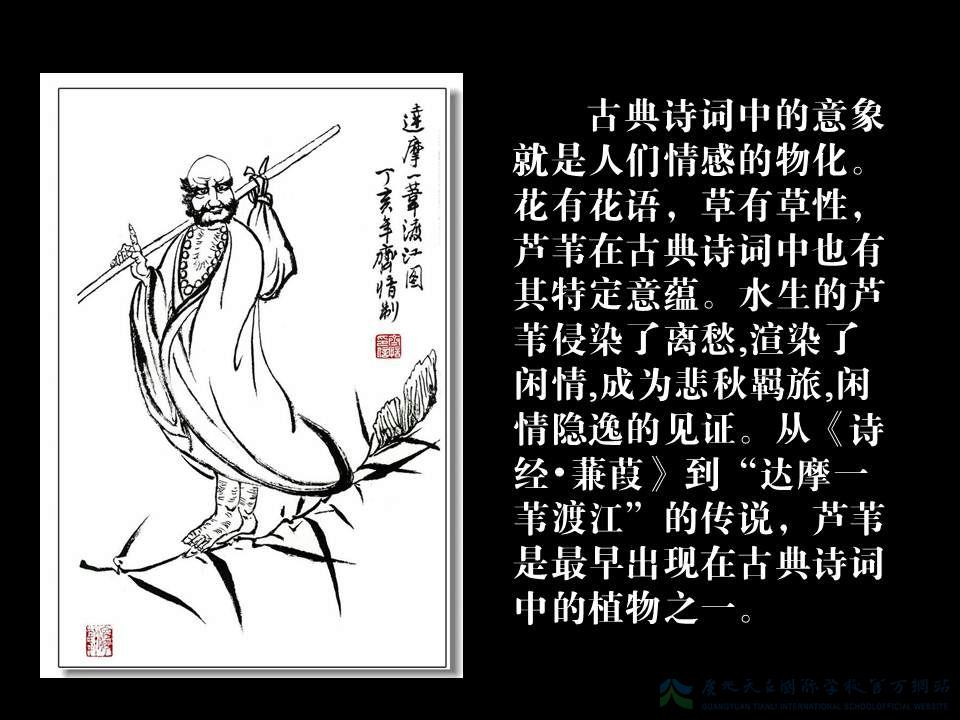 達摩一葦渡江图
丁亥年齊惜制
古典诗词中的意象
就是人们情感的物化。
花有花语，草有草性，
芦苇在古典诗词中也有
其特定意蕴。水生的芦
苇侵染了离愁,渲染了
闲情,成为悲秋羁旅,闲
情隐逸的见证。从《诗
经·蒹葭》到“达摩一
苇渡江”的传说，芦苇
是最早出现在古典诗词
中的植物之一。
广元天立国际学校官方網站
GUANGYUAN TIANLI INTERNATIONAL SCHOOL OFFICIAL WEBSITE